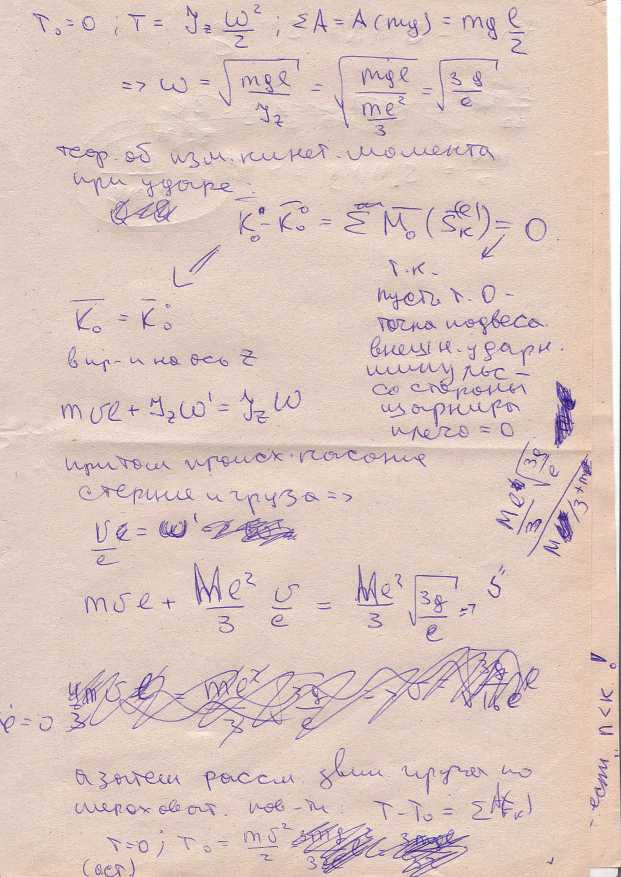 T₀=0 ; T = J_z ω²/2 ; ΣA = A(mg) = mg l/2
=> ω = √(mgl/J_z) = √(mgl/(ml²/3)) = √(3g/l)
теор. об изм. кинет. момента
при ударе:
K̄₀ - K̄₀° = Σ M̄₀ (S̄ₖ⁽ᵉ⁾) = 0
т.к.
пусть т. О -
точка подвеса.
внешн. ударн.
импульс -
со стороны
шарнира
плечо = 0
K̄₀ = K̄₀°
в пр-и на ось z
mvl + J_z ω' = J_z ω
при том происх. касание
стержня и груза =>
v/l = ω'
mvl + Ml²/3 v/l = Ml²/3 √(3g/l) =>
а затем рассм. движ груза по
шероховат. пов-ти. T-T₀ = ΣA(Fₖ)
T=0 ; T₀ = mv²/2
(ост)
- если n<k.